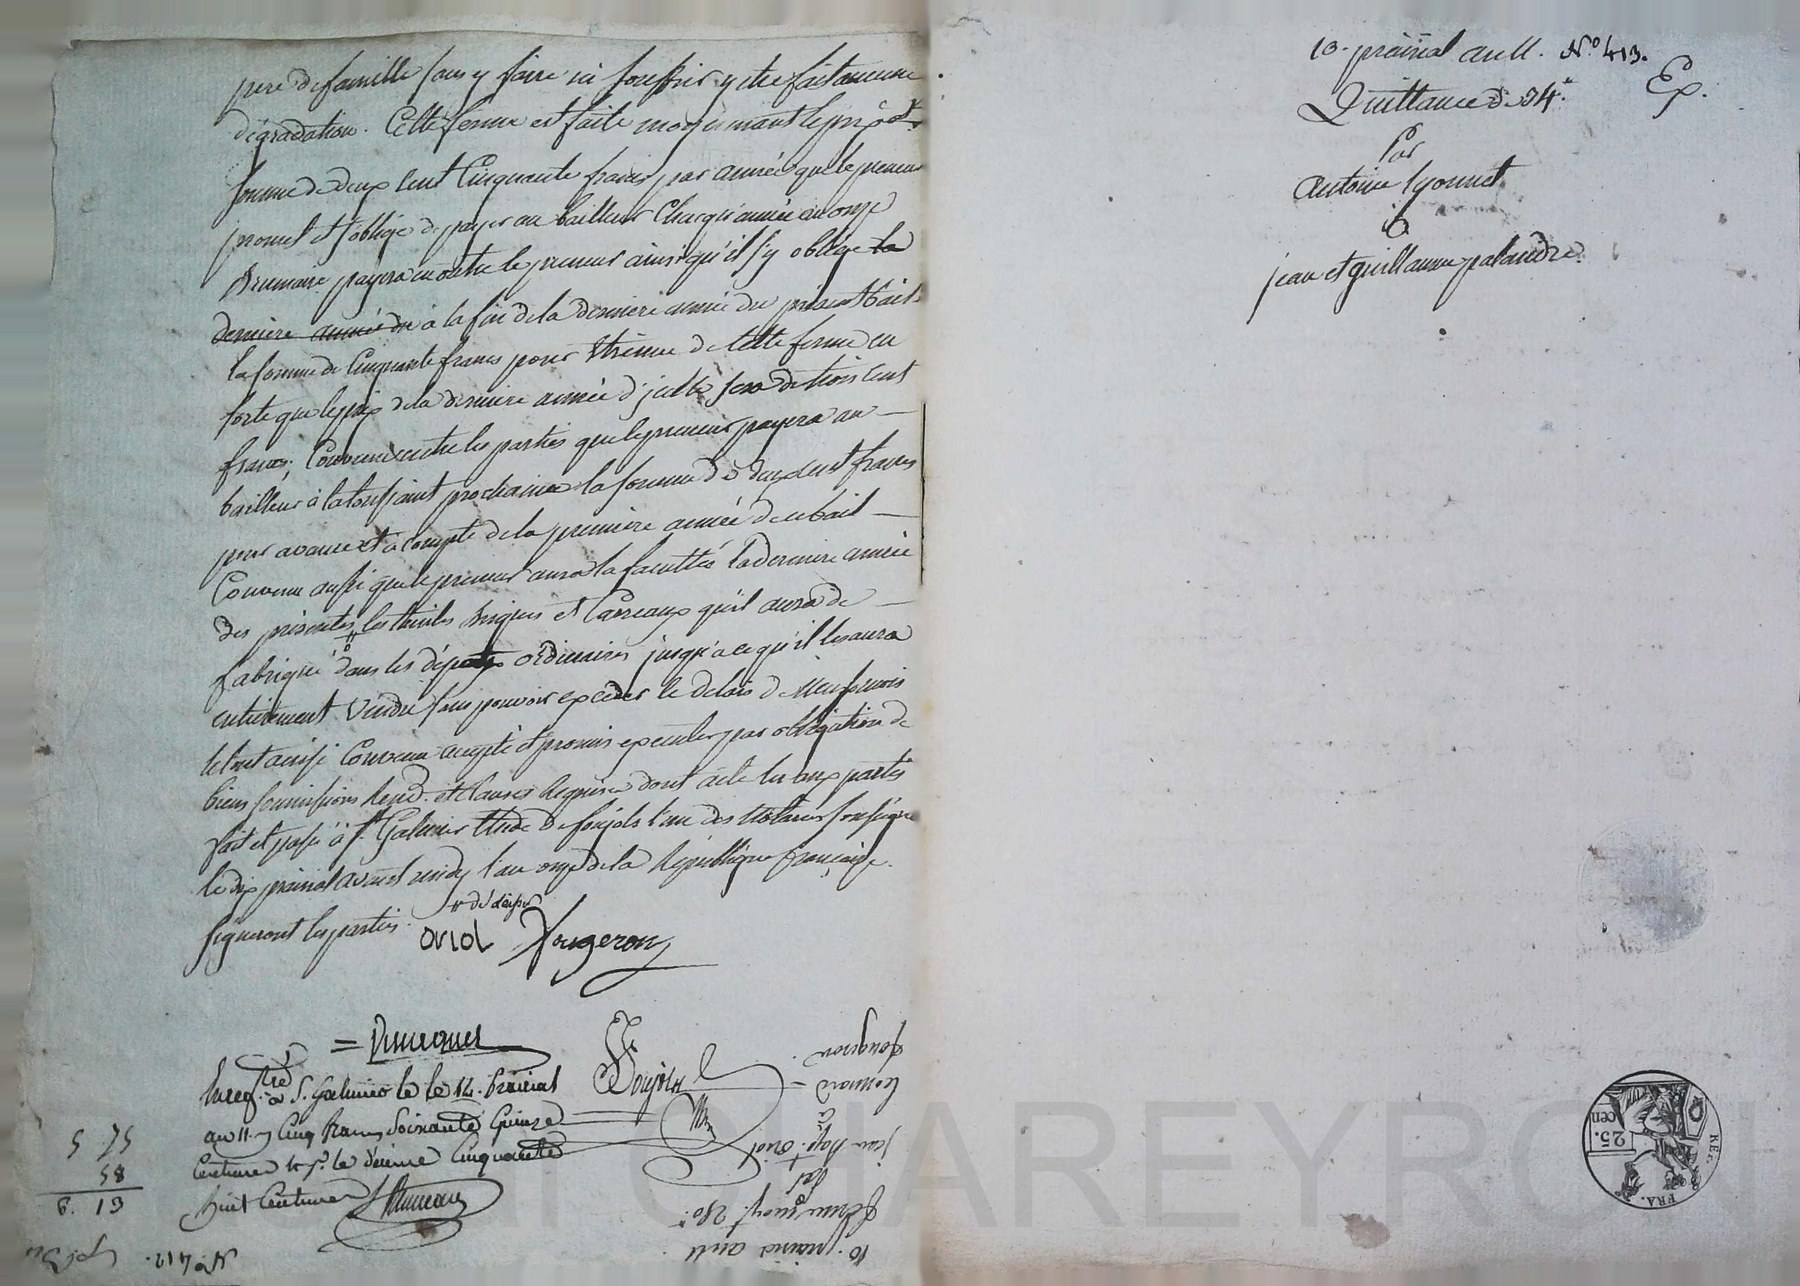 pere de famille sans y faire ni souffrir y etre fait aucune
dégradation. Cette ferme est faite moyennant le prix et
somme de deux cent cinquante francs par année que le preneur
promet et s'oblige de payer au bailleur chaqu'année au onze
brumaire payera en outre le preneur ainsi qu'il s'y oblige la
derniere année du à la fin de la derniere année du présent bail
la somme de cinquante francs pour étrenne de cette ferme en
sorte que le prix de la derniere année d'icelle sera de trois cent
francs; Convenu entre les parties que le preneur payera au
bailleur à la toussaint prochaine la somme de deux cent francs
pour avance et à compte de la premiere année de ce bail
Convenu aussi que le preneur aura la faculté la derniere année
des présentes les thuiles briques et carreaux qu'il aura de
fabriqué dans les dépots ordinaires jusqu'a ce qu'il les aura
entierement vendu sans pouvoir exceder le délais de neuf mois
le tout ainsi convenu accepté et promis executer par obligation de
biens soumissions rend. et clauses requises dont acte lu aux parties
fait et passé à St Galmier étude de soujols l'un des notaires soussigné
le dix prairial avant midy l'an onze de la République française.
signeront les parties.
# de laisser
oriol fougeron
Soujols
Enreg.tré à S. Galmier le 14. Prairial
an 11. cinq francs soixante quinze
centimes le Sr. le décime cinquante
huit centimes
5 75
58
6. 13
N.º 412.
10. prairial an 11
ferme moyt. 250 f
par
jean Bapt. oriol
à
Leonard
fougeron.
10. prairial an 11. N.º 413.
Ep.
Quittance de 34 f.
Par
antoine lyonnet
à
jean et guillaume palandre.
25.
cen
RÉP.
FRA.
CHAREYRON